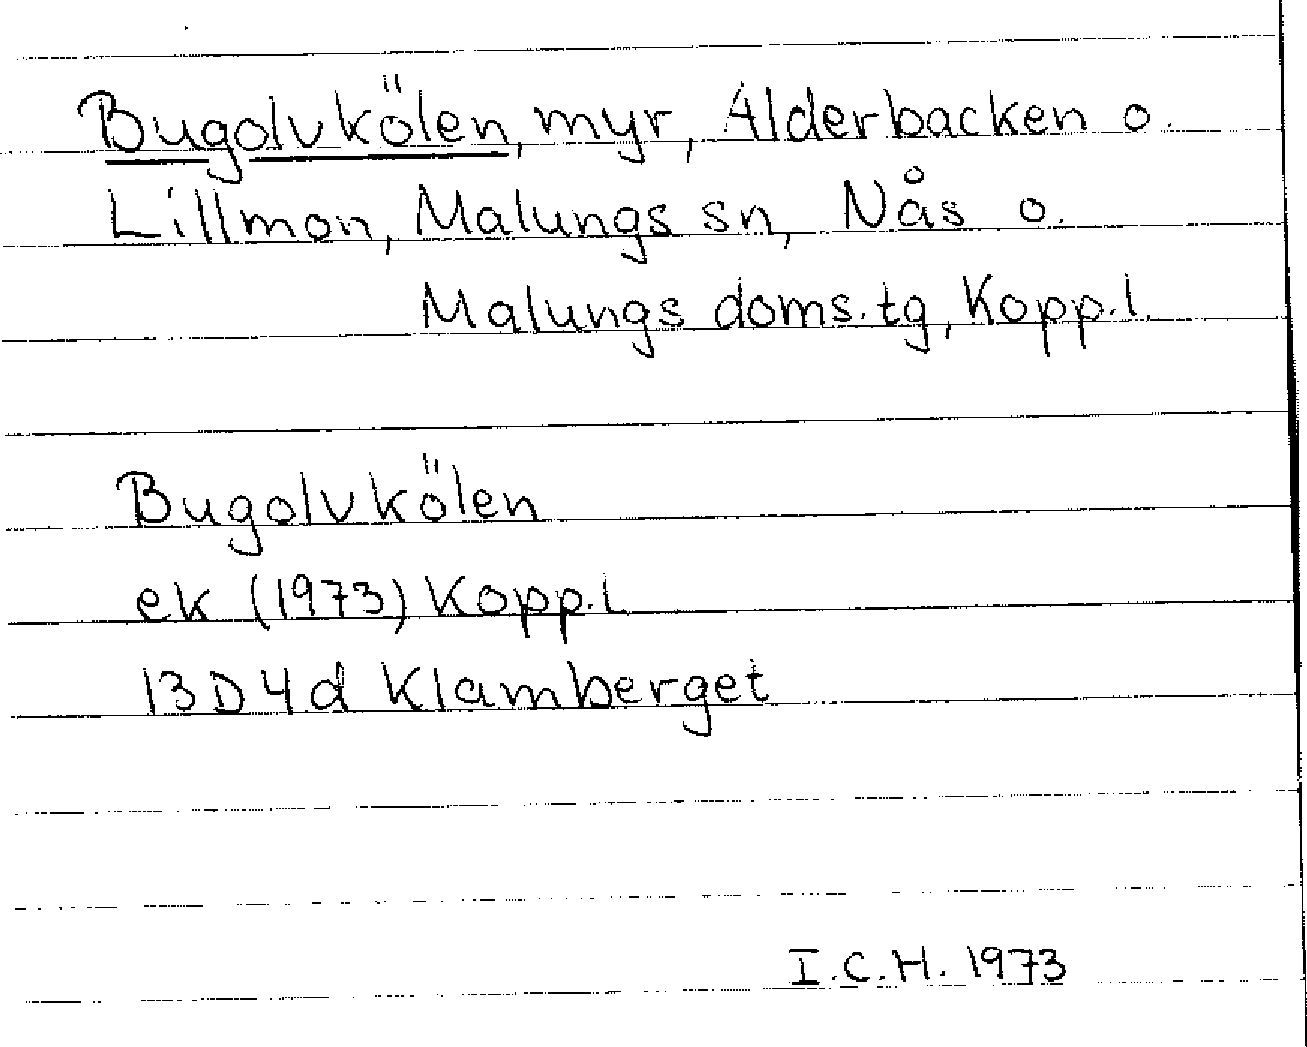 Bugolvkölen, myr, Alderbacken o.
Lillmon, Malungs sn, Nås o.
Malungs doms.tg, Kopp.l.
Bugolvkölen
ek (1973) Kopp.l
13D4d Klamberget
I.C.H. 1973